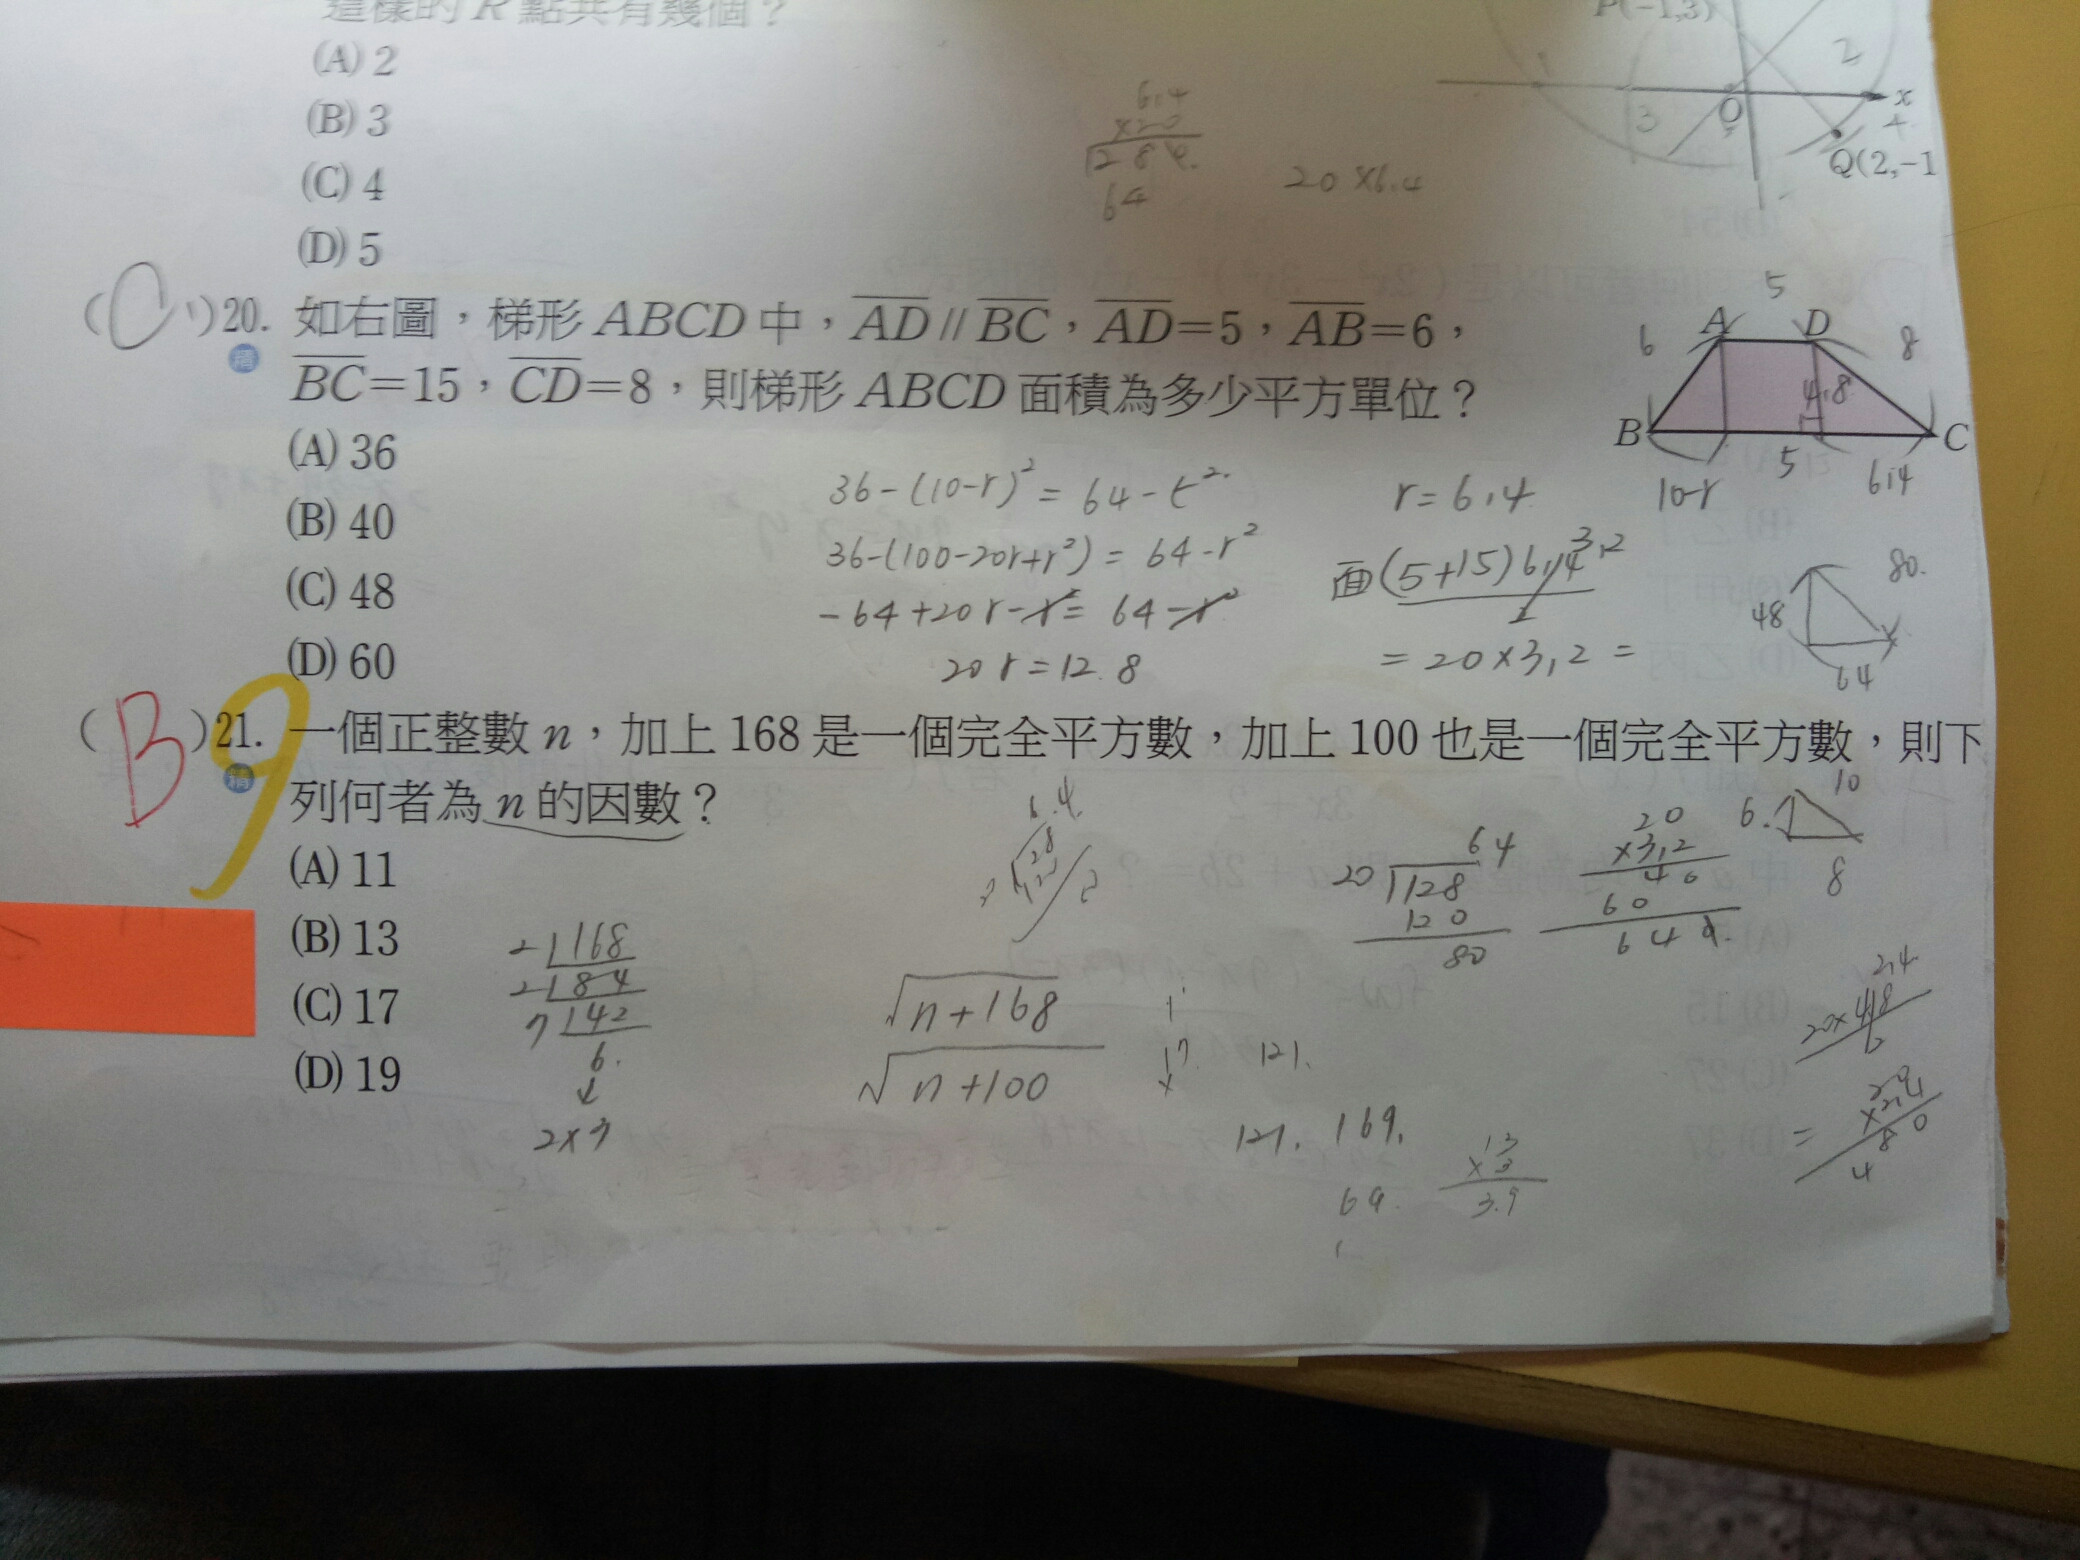 這樣的 R 點共有幾個？
(A) 2
(B) 3
(C) 4
(D) 5
P(−1,3)
2
3
O
x
4
Q(2,−1
6.4
×20
128
64
20×6.4
( C ) 20. 如右圖，梯形 ABCD 中，AD // BC，AD=5，AB=6，
BC=15，CD=8，則梯形 ABCD 面積為多少平方單位？
(A) 36
(B) 40
(C) 48
(D) 60
5
A D
6 8
4.8
B C
10-r 5 6.4
36-(10-r)² = 64-r²
36-(100-20r+r²) = 64-r²
-64+20r-r² = 64-r²
20r=128
r=6.4
面(5+15)6.4 3.2
2
=20×3.2=
80.
48
64
( B ) 21. 一個正整數 n，加上 168 是一個完全平方數，加上 100 也是一個完全平方數，則下
列何者為 n 的因數？
(A) 11
(B) 13
(C) 17
(D) 19
9
2 168
2 84
7 42
6.
↓
2×3
√n+168
√n+100
17
121.
121. 169.
69
13
×3
39
64
20 128
120
80
20
×3.2
40
60
64
10
6.
8
2.4
20×4.8
2
= 20
×2.4
80
4